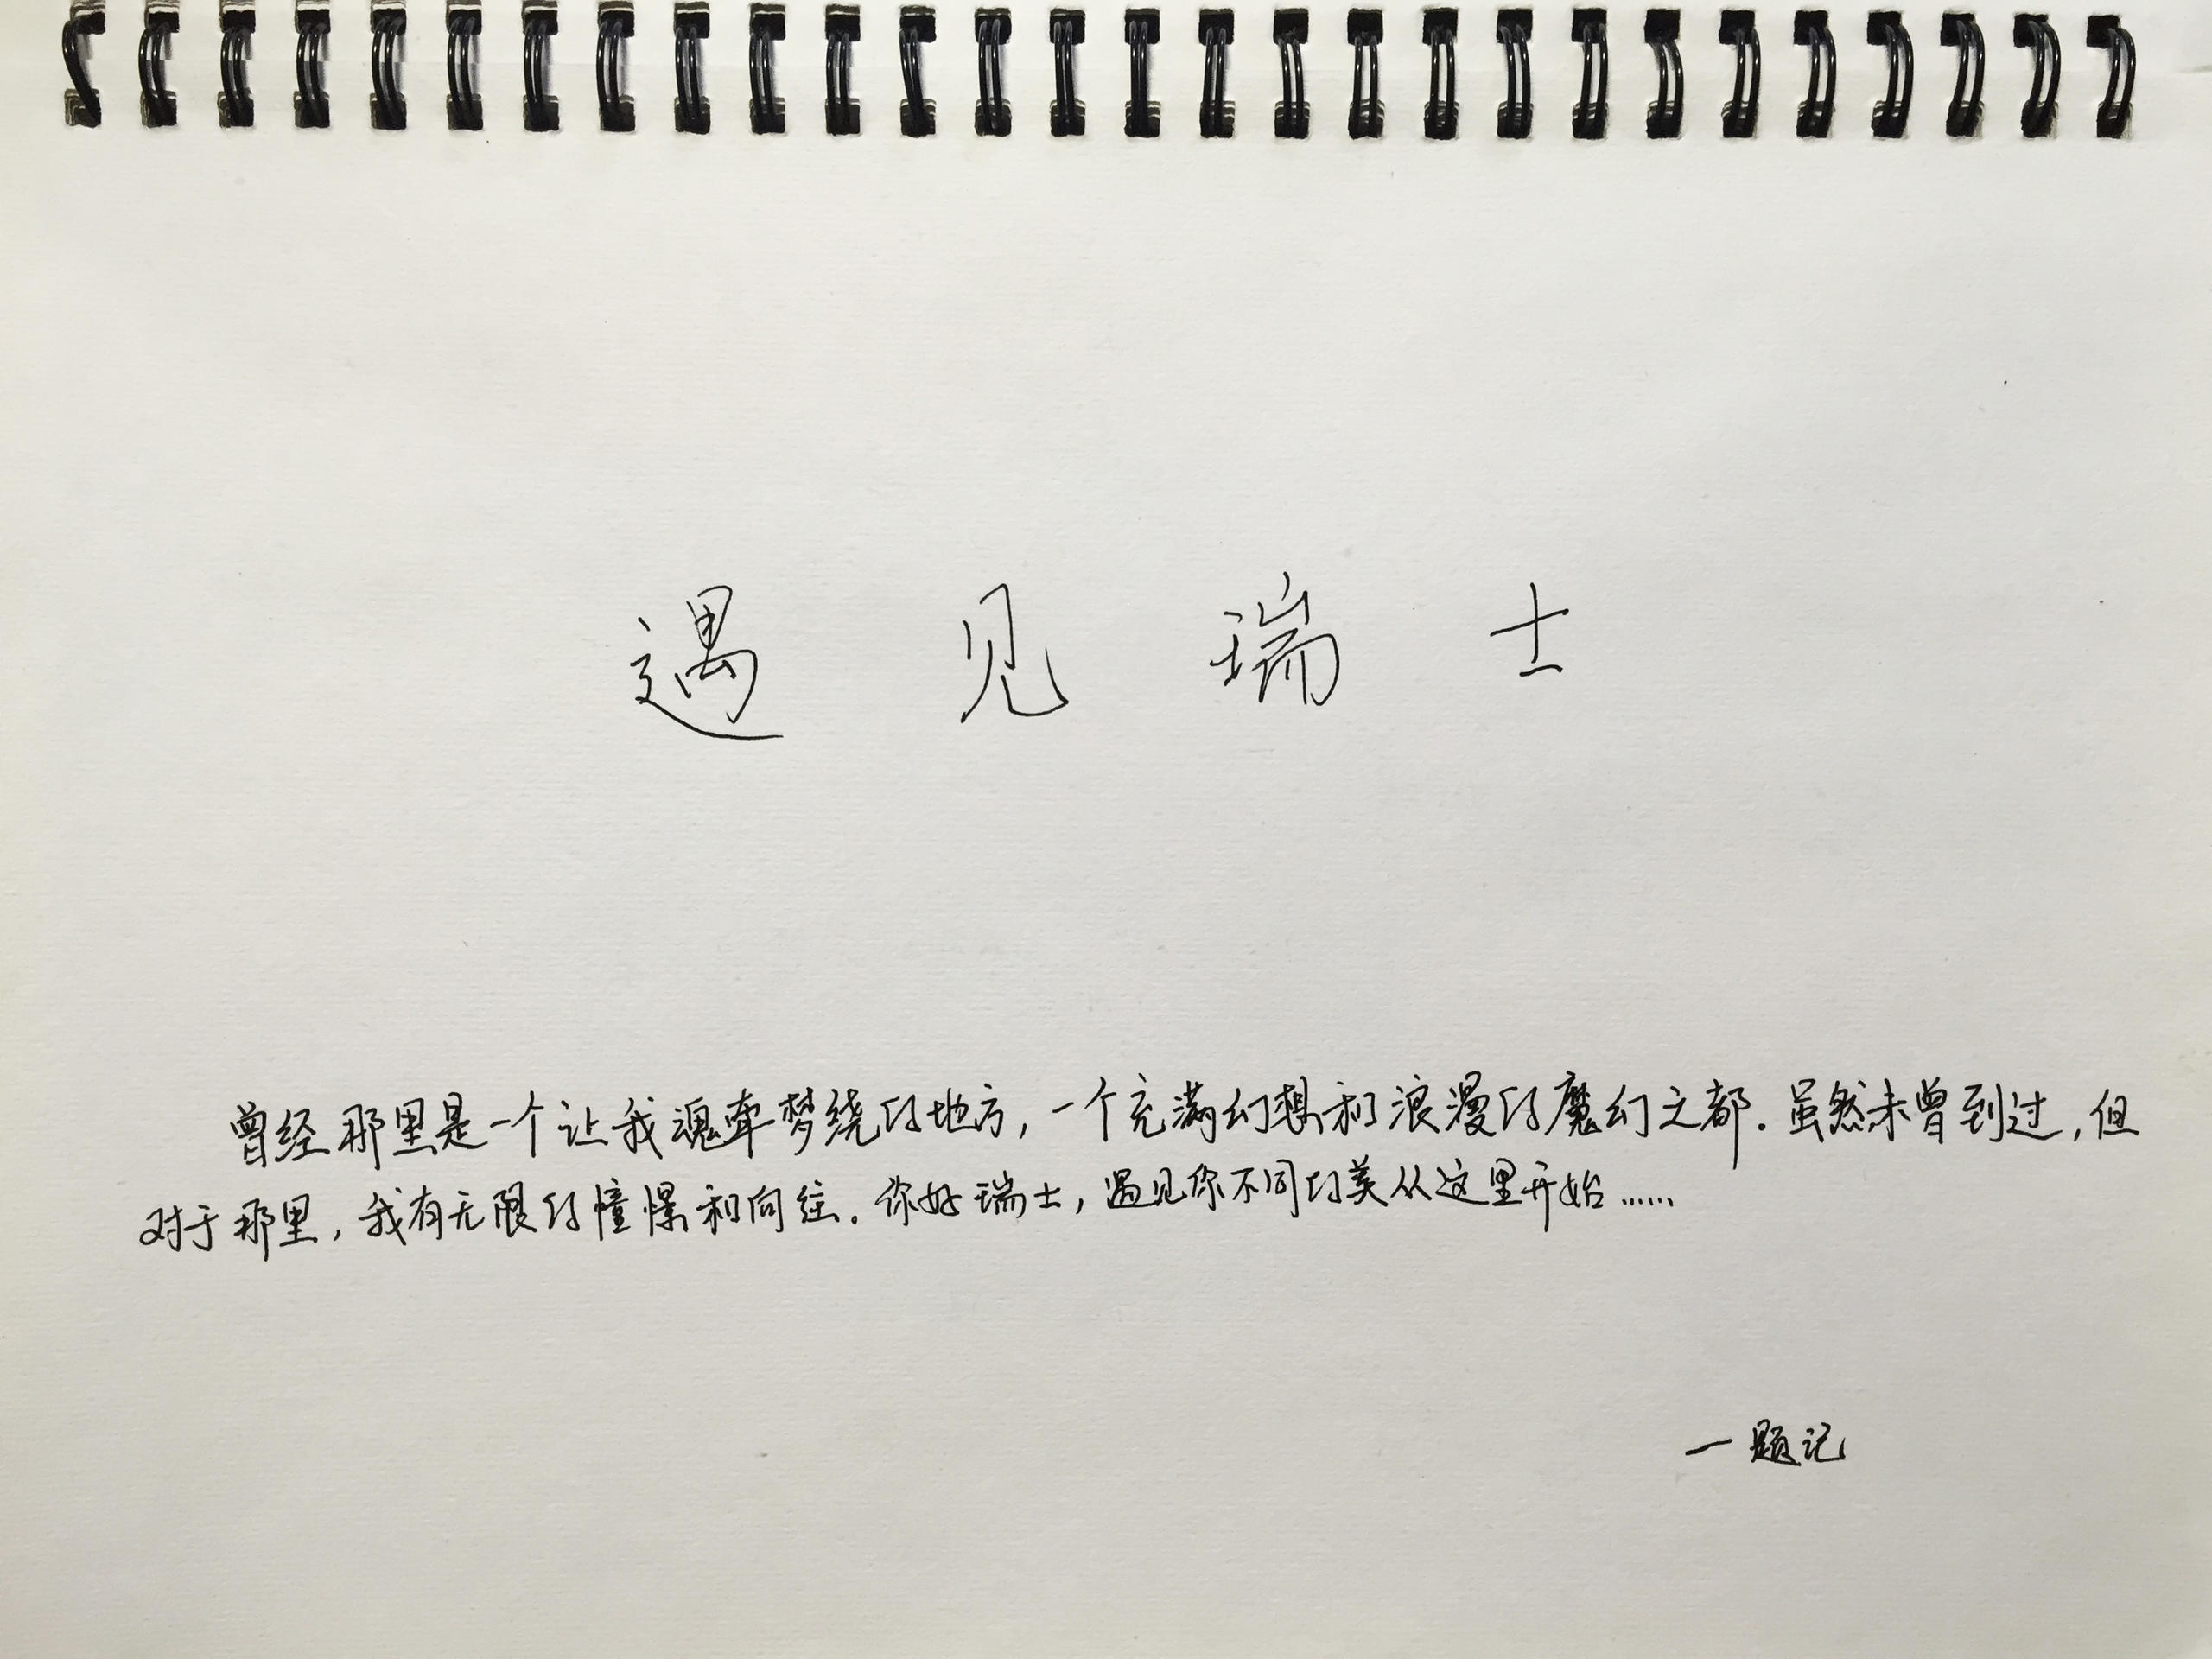 遇见瑞士
曾经那里是一个让我魂牵梦绕的地方,一个充满幻想和浪漫的魔幻之都.虽然未曾到过,但
对于那里,我有无限的憧憬和向往。你好瑞士,遇见你不同的美从这里开始……
—题记